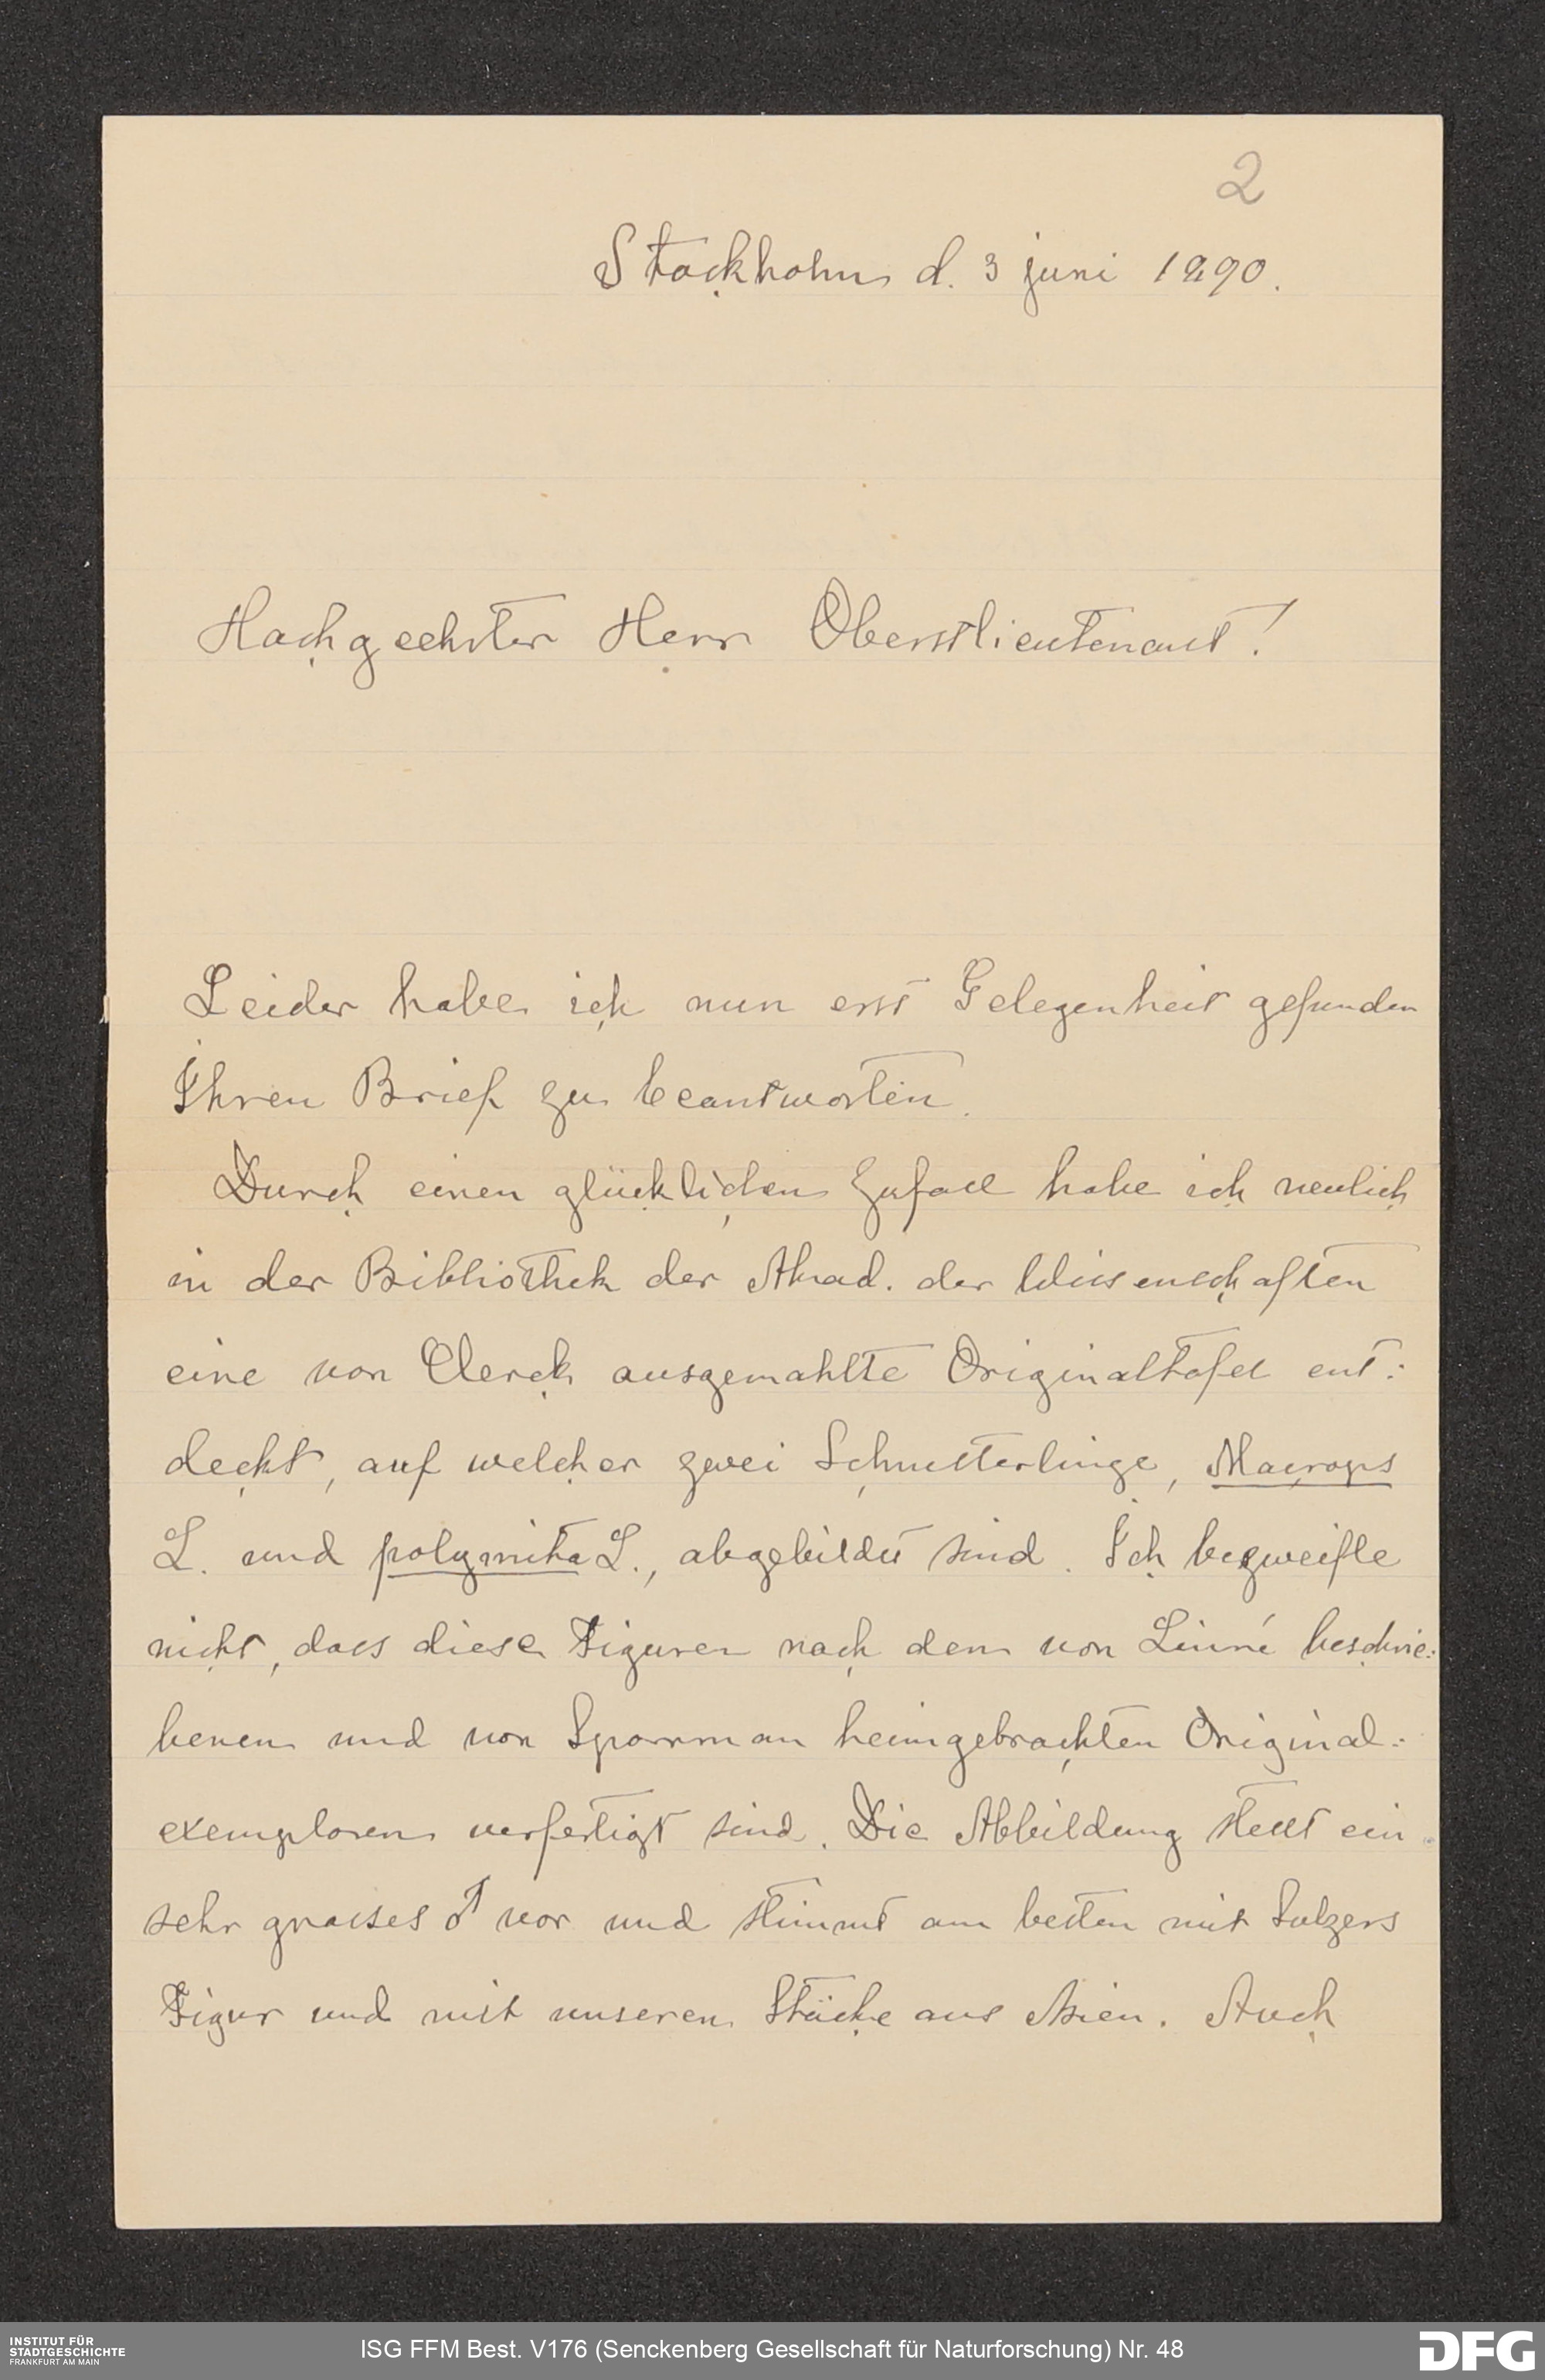 2
Stockholm d. 3 juni 1890.
Hochgeehrter Herr Oberstlieutenant!
Leider habe ich nun erst Gelegenheit gefunden
Ihren Brief zu beantworten.
Durch einen glücklichen Zufall habe ich neulich
in der Bibliothek der Akad. der Wissenschaften
eine von Clerck ausgemahlte Originaltafel ent:
deckt, auf welcher zwei Schmetterlinge, Macrops
L. und polymita L., abgebildet sind. Ich bezweifle
nicht, dass diese Figuren nach den von Linné beschrie:
benen und von Sparrman heimgebrachten Original:
exemplaren verfertigt sind. Die Abbildung stellt ein
sehr grosses ♂ vor und stimmt am besten mit Sulzers
Figur und mit unseren Stücke aus Asien. Auch
INSTITUT FÜR
STADTGESCHICHTE
FRANKFURT AM MAIN
ISG FFM Best. V176 (Senckenberg Gesellschaft für Naturforschung) Nr. 48
DFG